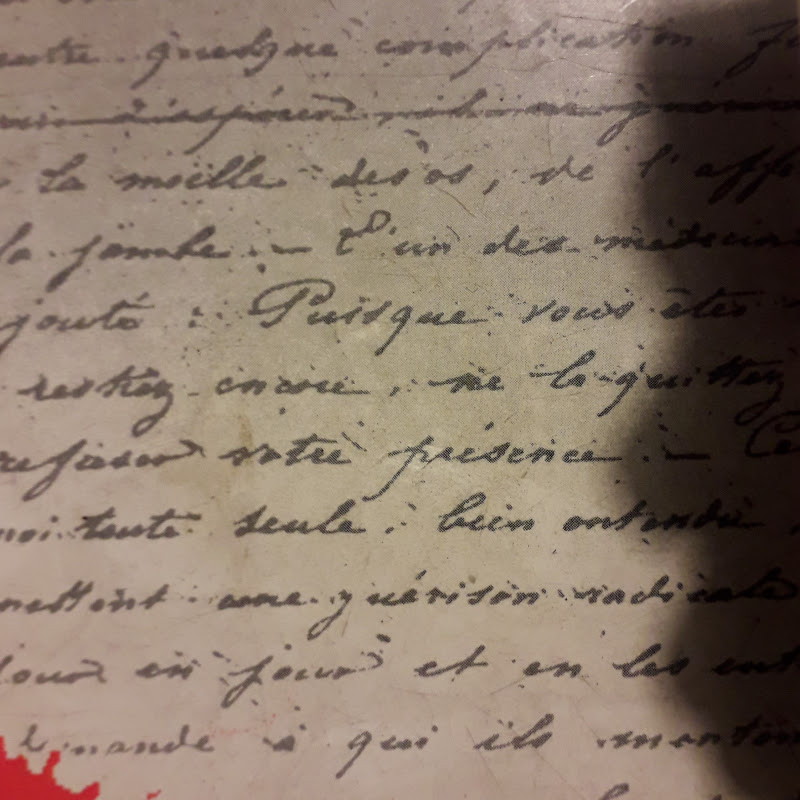 quelque complication
la moelle des os, de l'aff
la jambe. — L'un des médecins
jouté : Puisque vous êtes
restiez encore, ne la quittez
refuser votre présence. — Ce
moi toute seule, bien entendu,
mettent une guérison radicale
jour en jour et en les ent
demande à qui ils mentent